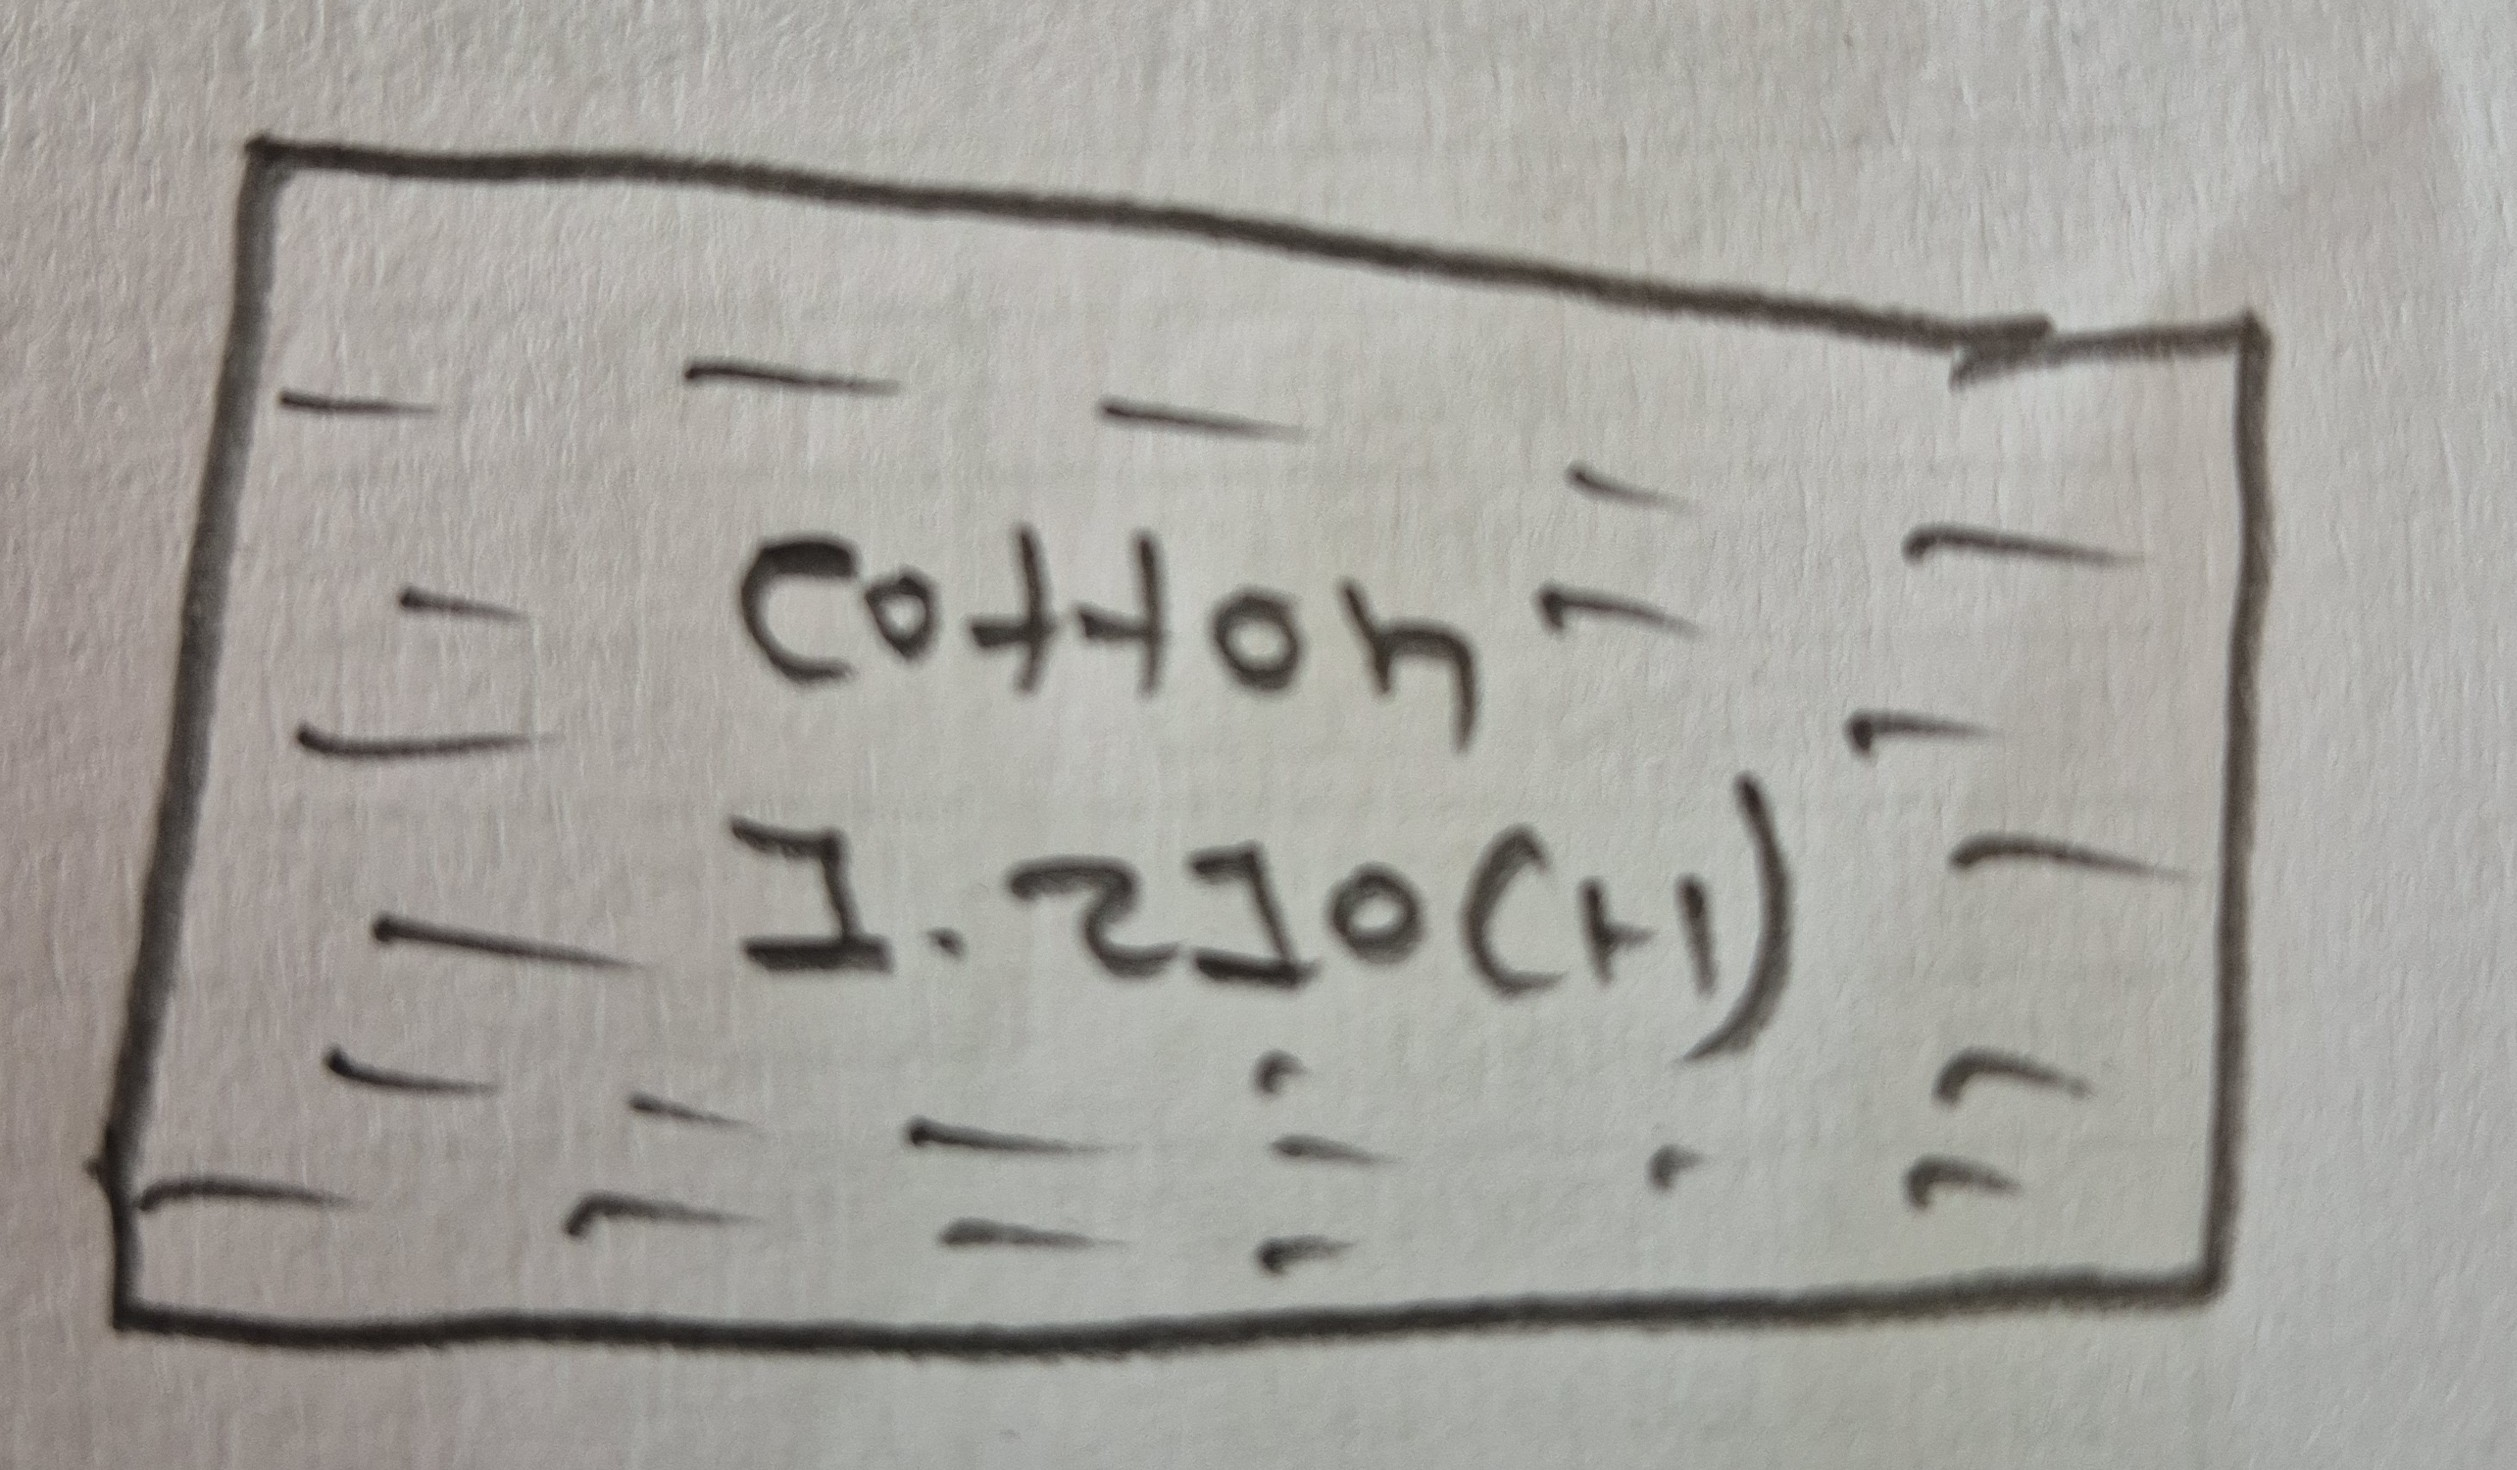 Cotton
1.210(+1)